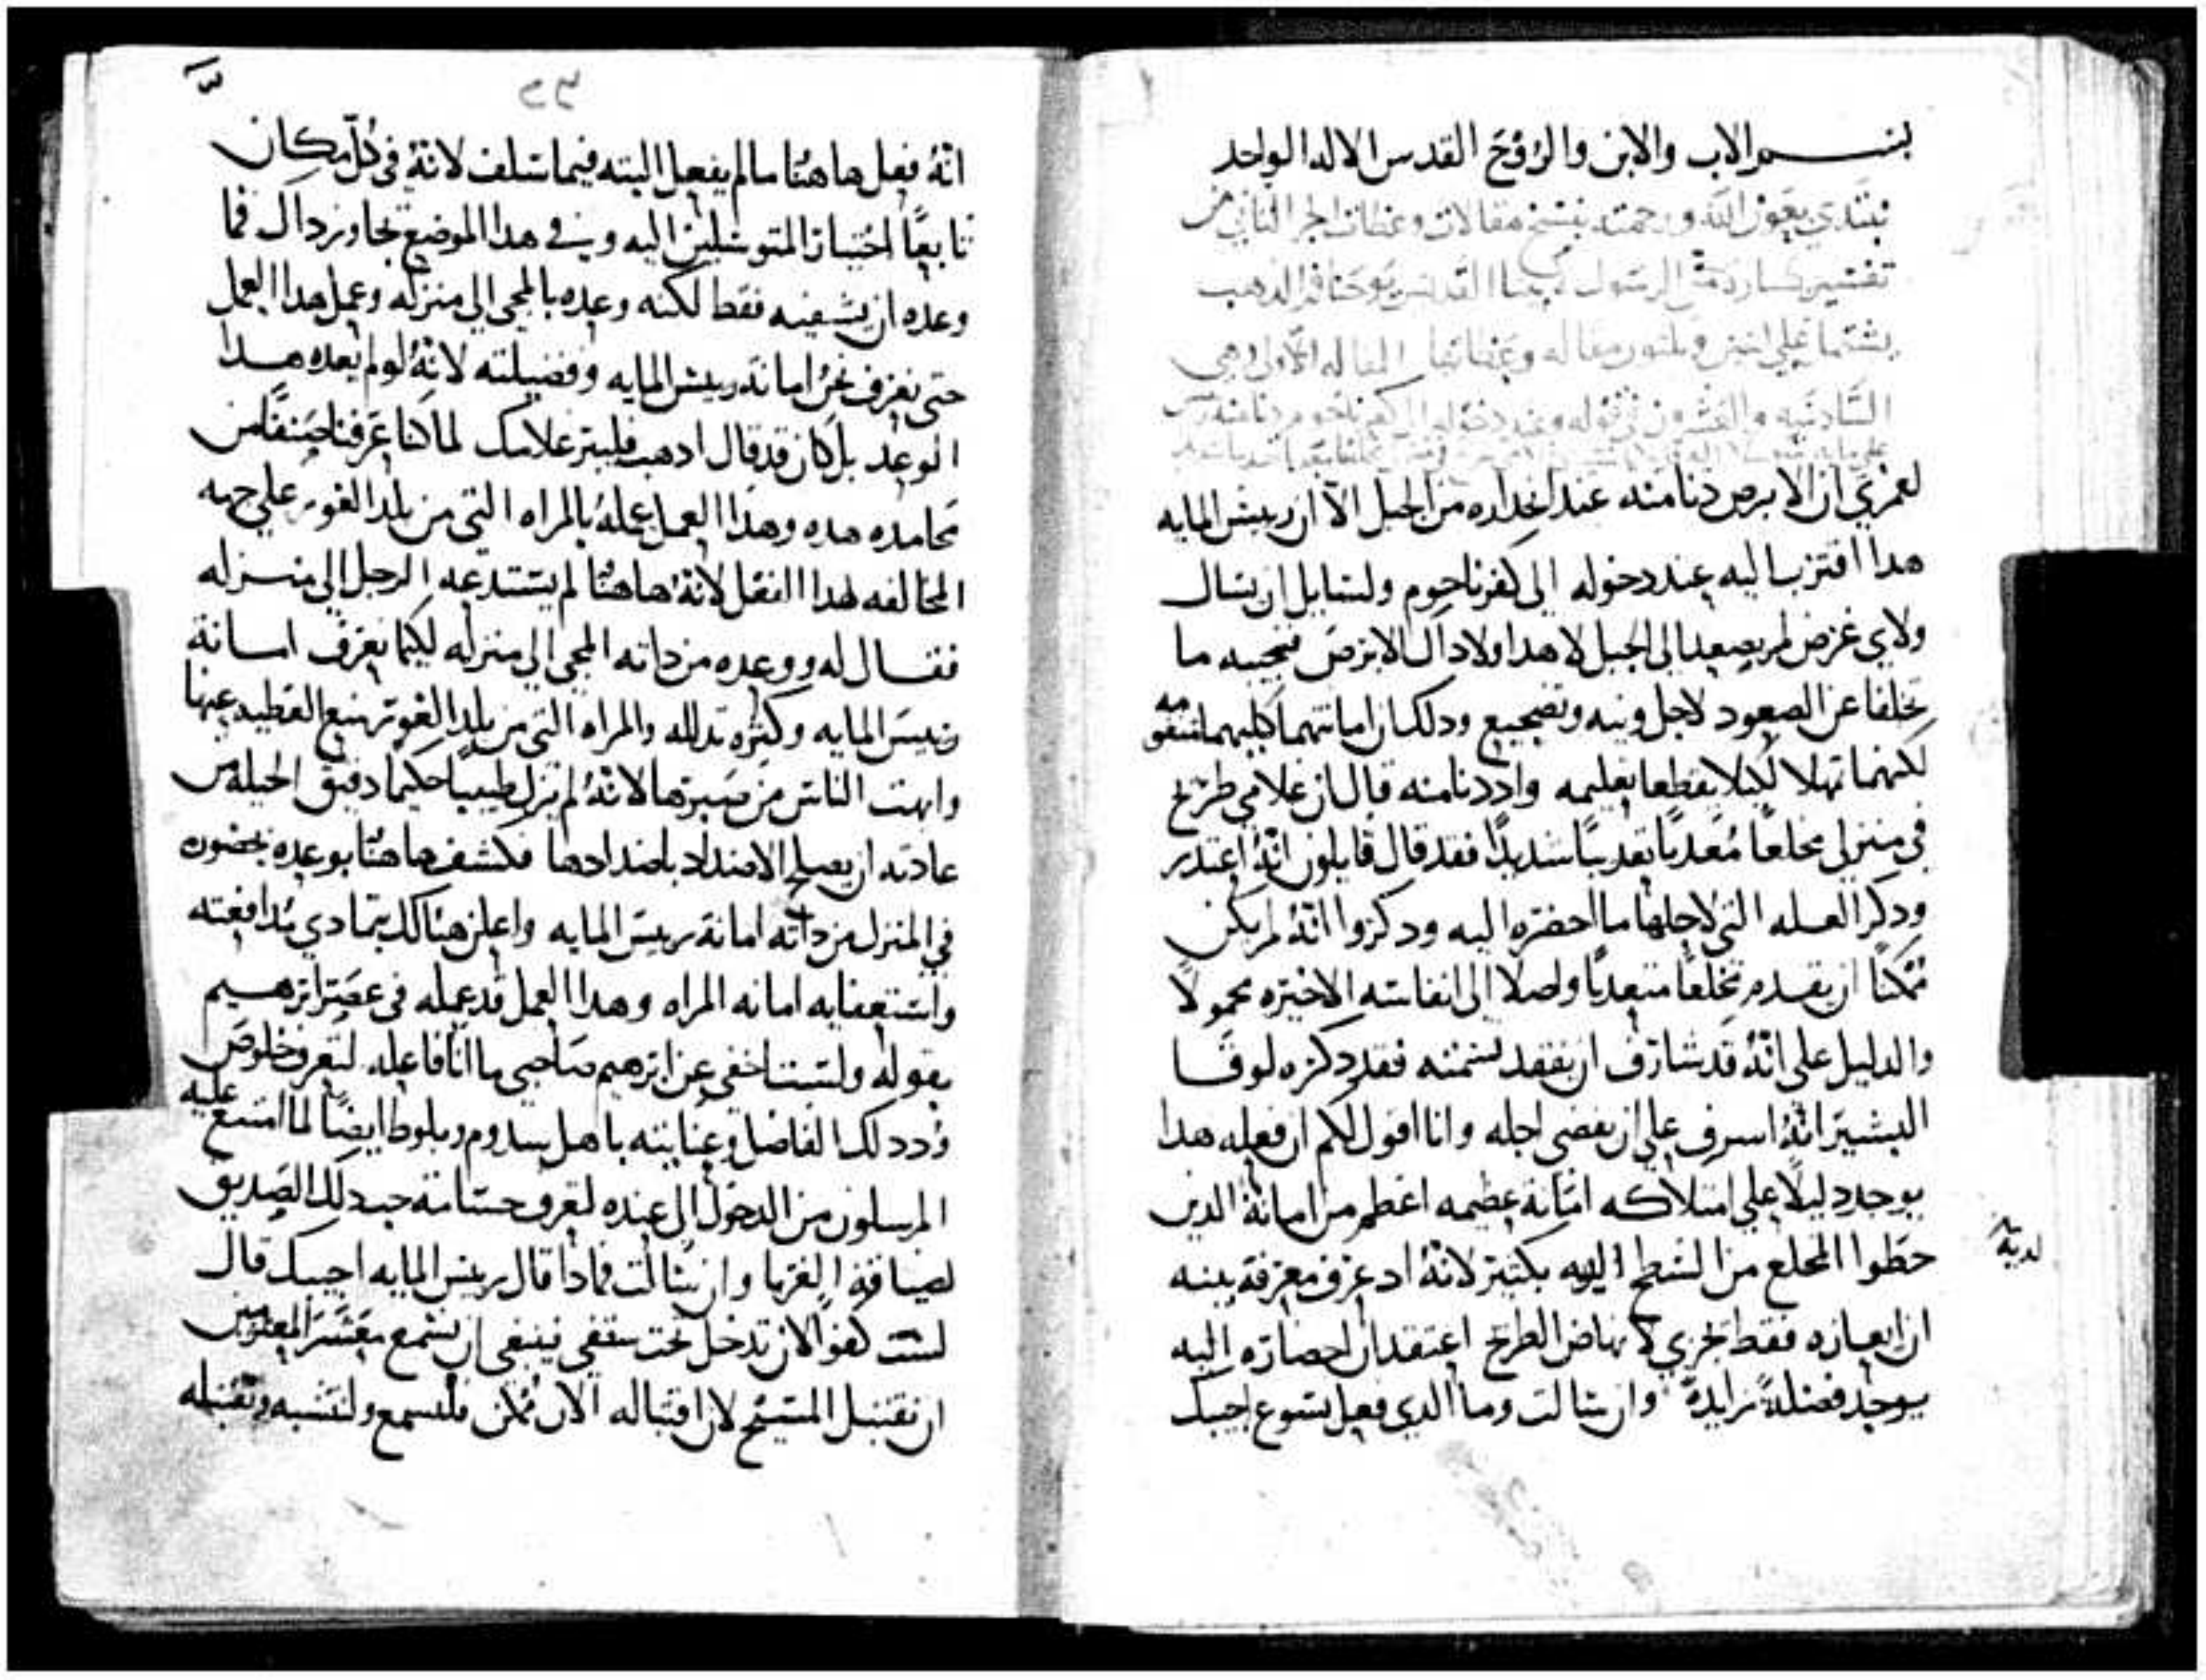 بسم الاب والابن والروح القدس الاله الواحد
نبتدي بعون الله ورحمته بنسخ مقالات وعظات الجز الثاني من
تفسير بشارة متى الرسول القديس يوحنا فم الدهب
يشتمل علي اتنين وتلتون مقاله وعظاتها المقاله الاولي وهي
السادسه والعشرون في قوله وعند دخوله الي كفرناحوم دنا منه
لعمري ان الابرص دنا منه عند انحداره من الجبل الا ان رييس المايه
هدا اقترب اليه عند دخوله الي كفرناحوم ولسايل ان يسال
ولاي غرض لم يصعد الي الجبل لا هدا ولا داك الابرص فنجيبه ما
تخلفا عن الصعود لاجل ونيه وتضجيع ودلك ان امانتهما كليهما متقومه
لكنهما تمهلا لكيلا يقطعا تعليمه واد دنا منه قال ان غلامي طريح
في منزلي مخلعا معدبا تعديبا شديدا فقد قال قايلون انه اعتدر
ودكر العله التي لاجلها ما احضره اليه ودكروا انه لم يكن
ممكنا ان يقدم مخلعا متعدبا واصلا الي انفاسه الاخيره محمولا
والدليل علي انه قد شارف ان يفقد نسمته فقد دكره لوقا
البشير انه اسرف علي ان يقضي اجله وانا اقول لكم ان فعله هدا
يوجد دليلا علي امتلاكه امانة عظيمه اعظم من امانة الدين
حطوا المخلع من السطح اليه بكتير لانه اد عرف معرفة بينه
لديه
ان ايعازه فقط تجزي لانهاض الطريح اعتقد ان احضاره اليه
يوجد فضلة زايدة وان سالت وما الدي فعل يسوع اجيبك
انه فعل هاهنا ما لم يفعل البته فيما سلف لانه في كل مكان
تابعا اختيار المتوسلين اليه وفي هدا الموضع تجاوز داك فما
وعده ان يشفيه فقط لكنه وعده بالمجي الي منزله وعمل هدا العمل
حتي نعرف نحن امانة رييس المايه وفضيلته لانه لو لم يعده هدا
الوعد بل كان قد قال ادهب فليبر غلامك لما كنا عرفنا صنفا من
محامده هده وهدا العمل عمله بالمراه التي من بلد الغور علي جهه
المخالفه لهدا الفعل لانه هاهنا لم يستدعه الرجل الي منزله
فقال له ووعده من داته المجي الي منزله لكيما نعرف امانة
رييس المايه وكثره تدلله والمراه التي من بلد الغور منع العطيه عنها
وابهت الناس من صبرها لانه لم يزل طبيبا حكيما دقيق الحيله من
عادته ان يصلح الاضداد باضدادها فكشف هاهنا بوعده بحضوره
في المنزل من داته امانة رييس المايه واعلن هناك بتمادي مدافعته
واستعفايه امانه المراه وهدا العمل قد عمله في عصر ابرهيم
بقوله ولست اخفي عن ابرهيم صاحبي ما انا فاعله لنعرف خلوص
ود دلك الفاضل وعنايته باهل سدوم وبلوط ايضا لما امتنع عليه
المرسلون من الدخول الي عنده لنعرف جسامة حب دلك الصديق
لضيافة الغربا وان سالت فمادا قال رييس المايه اجيبك قال
لست كفوا لان تدخل تحت سقفي ينبغي ان نسمع معشر المعتزمين
ان نقتبل المسيح لان اقتباله الان ممكن فلنسمع ولنتشبه ونقتبله